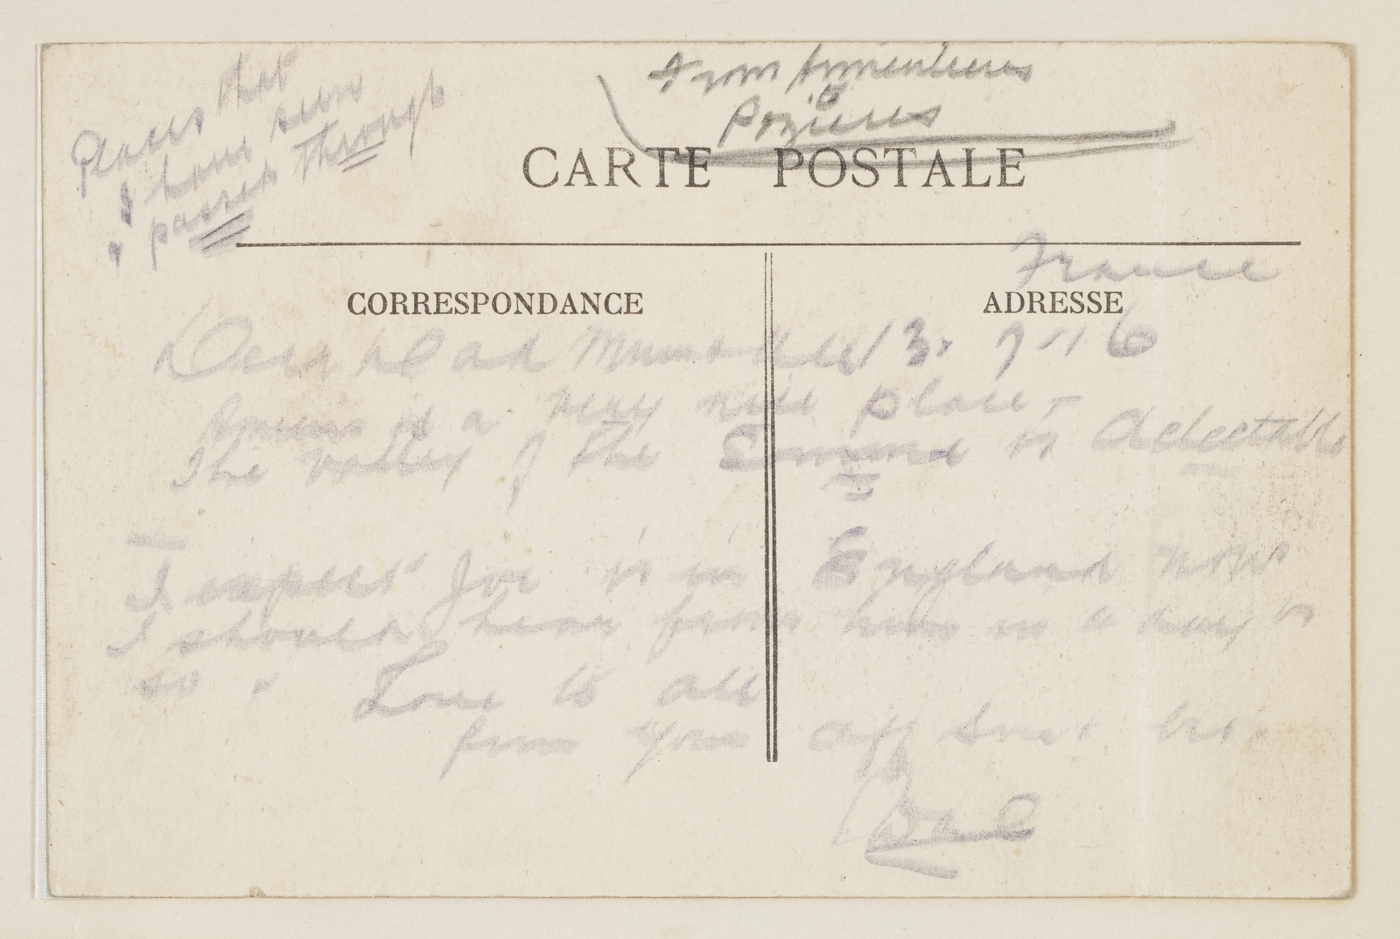 Places that
I have seen
& passed through
From Armentieres
to
Pozieres
CARTE POSTALE
France
CORRESPONDANCE
ADRESSE
Dear Dad Mum & all 13.7.16
Amiens is a very nice place -
The valley of the Somme is delectable
I expect Joe is in England now
I should hear from him in a day or
so. Love to all
from your aff son & bro.